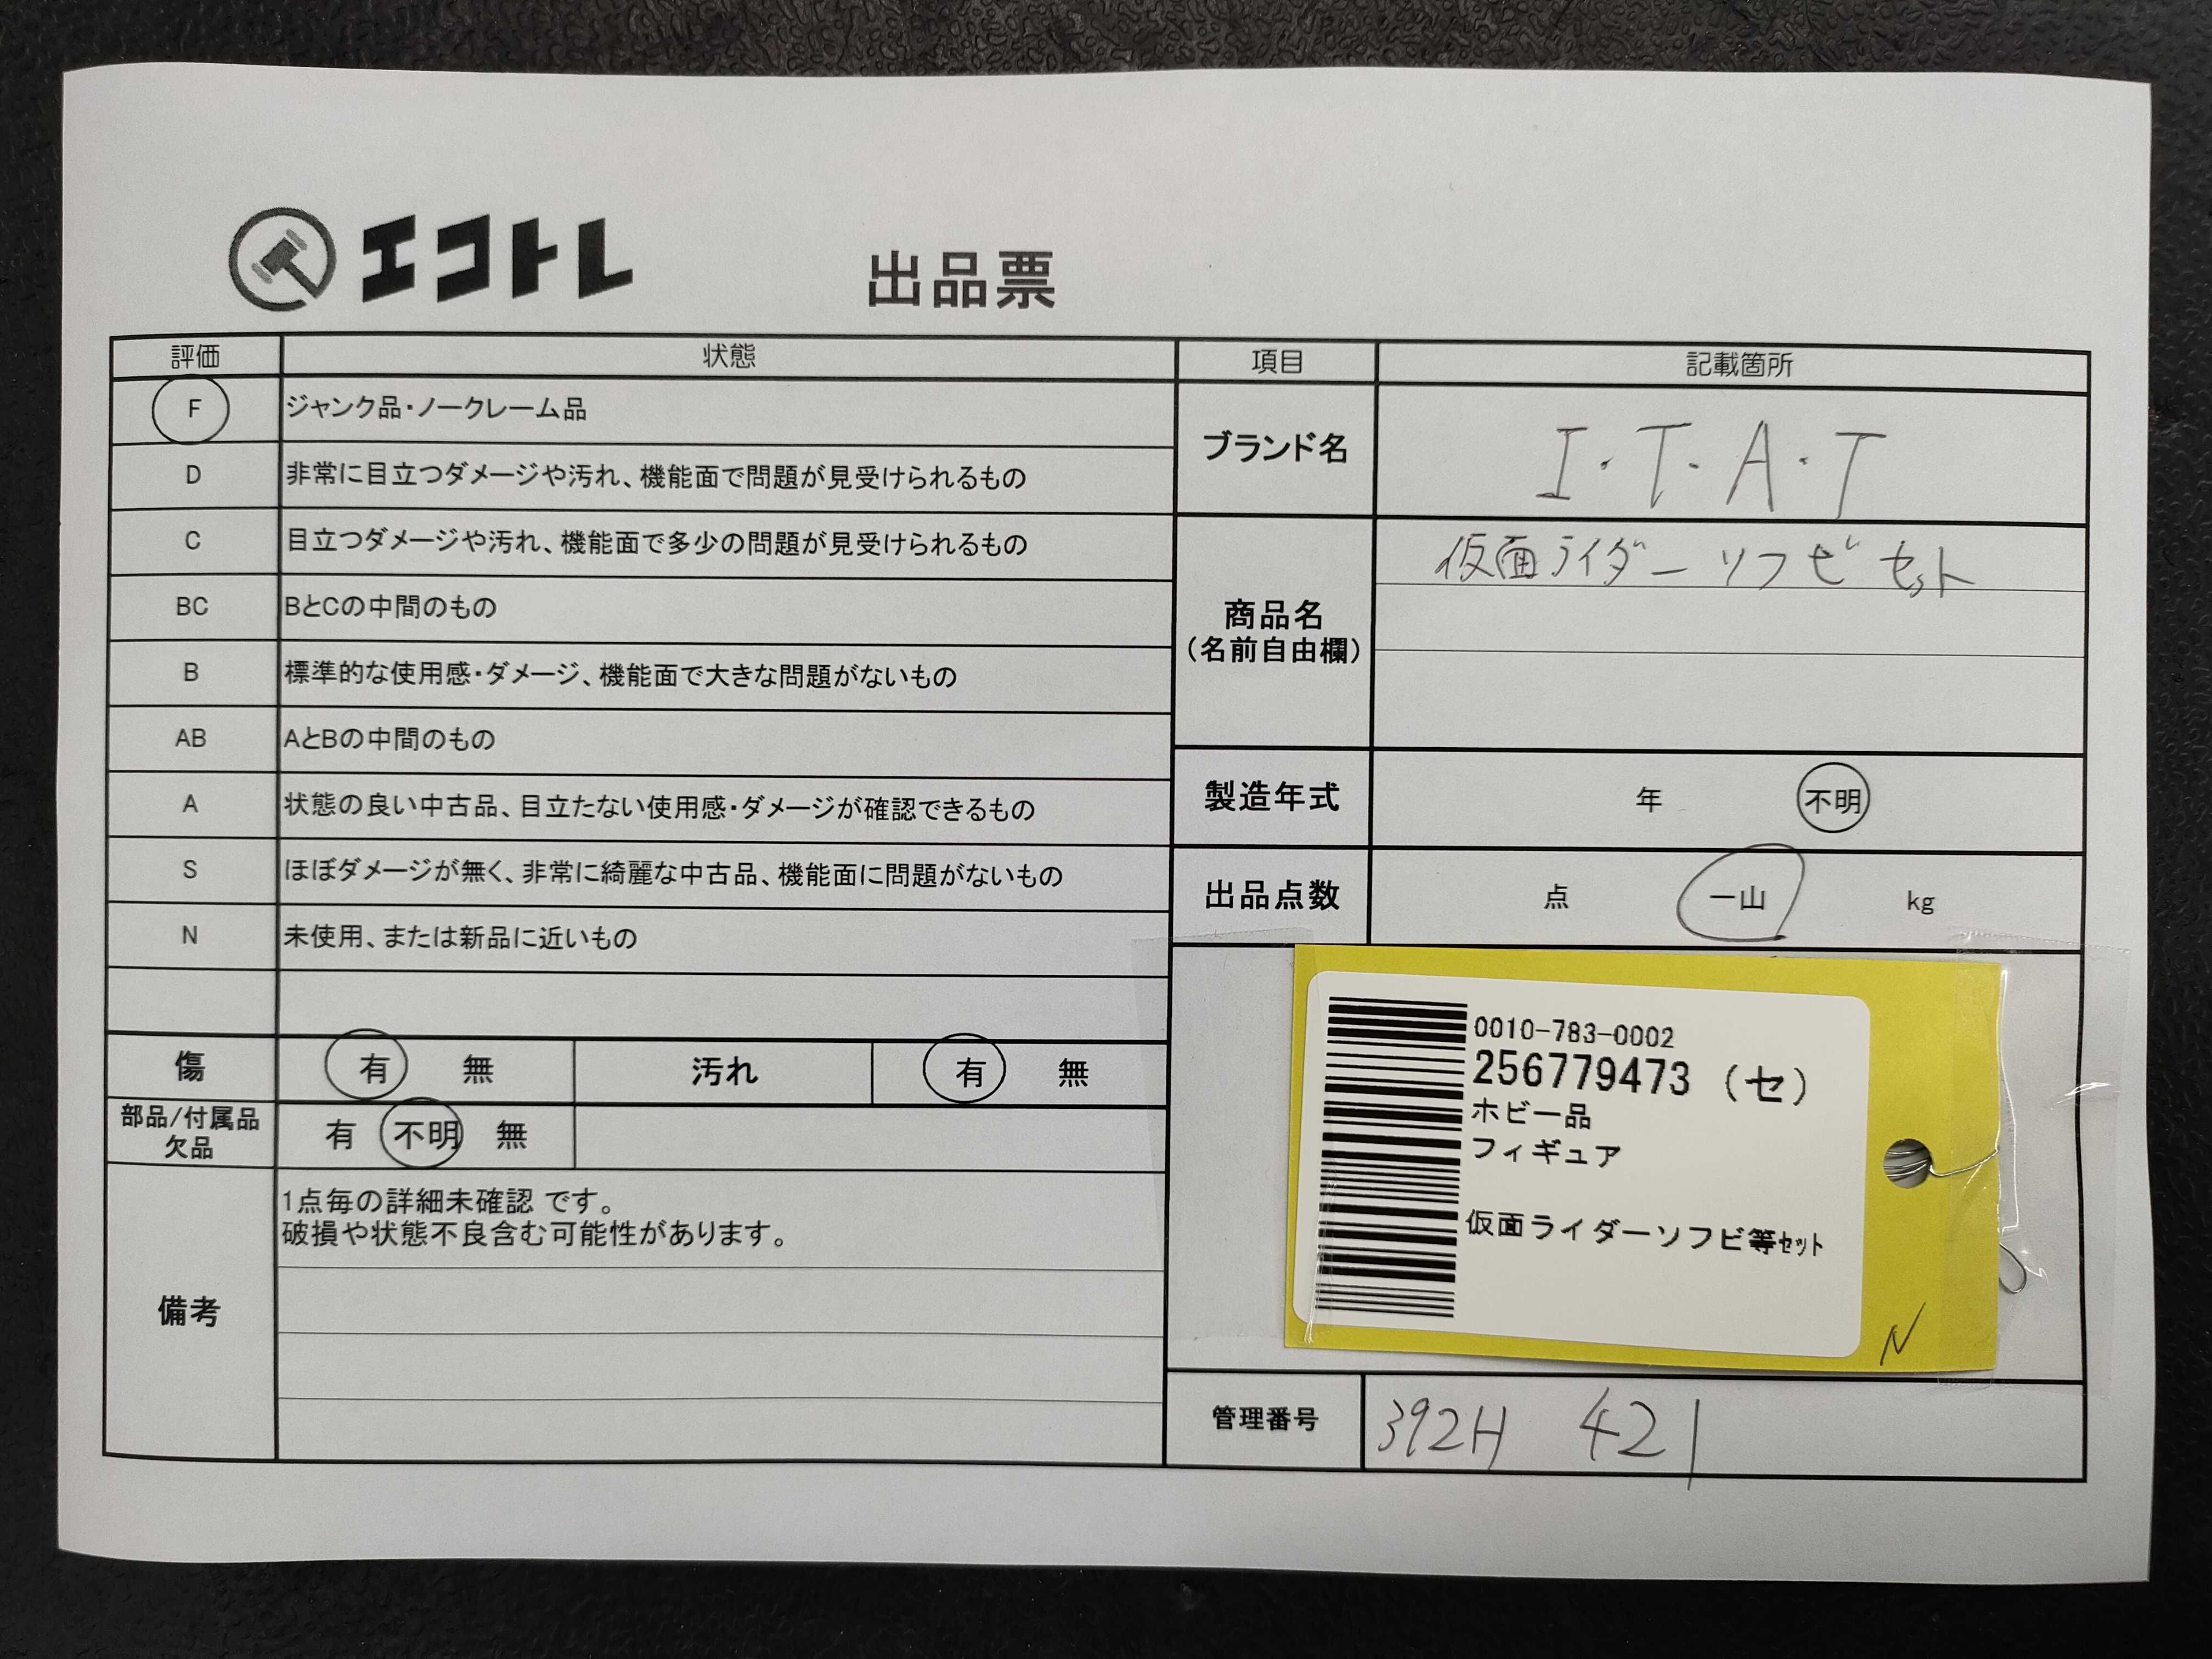 エコトレ
出品票
評価 状態
F ジャンク品・ノークレーム品
D 非常に目立つダメージや汚れ、機能面で問題が見受けられるもの
C 目立つダメージや汚れ、機能面で多少の問題が見受けられるもの
BC BとCの中間のもの
B 標準的な使用感・ダメージ、機能面で大きな問題がないもの
AB AとBの中間のもの
A 状態の良い中古品、目立たない使用感・ダメージが確認できるもの
S ほぼダメージが無く、非常に綺麗な中古品、機能面に問題がないもの
N 未使用、または新品に近いもの
傷 有 無 汚れ 有 無
部品/付属品
欠品 有 不明 無
備考
1点毎の詳細未確認 です。
破損や状態不良含む可能性があります。
項目 記載箇所
ブランド名 I・T・A・T
商品名
(名前自由欄)
仮面ライダー ソフビ セット
製造年式 年 不明
出品点数 点 一山 kg
0010-783-0002
256779473 (セ)
ホビー品
フィギュア
仮面ライダーソフビ等セット
N
管理番号 392H 421